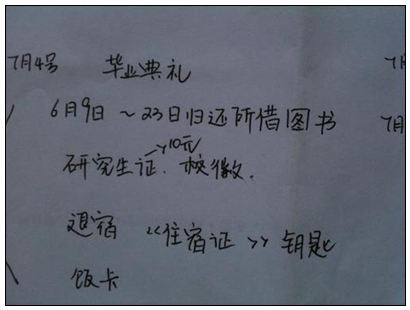 7月4号 毕业典礼 7月
6月9日~23日归还所借图书 7月
→10元
研究生证、校徽.
退宿 《住宿证》 钥匙
饭卡